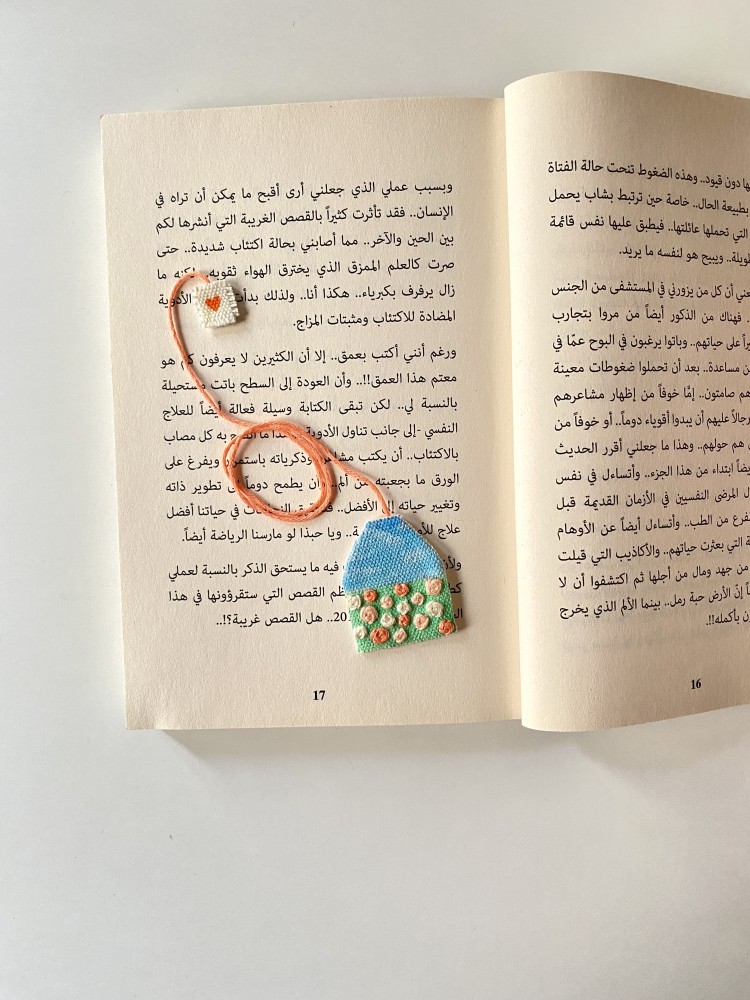 ها دون قيود.. وهذه الضغوط تنحت حالة الفتاة
بطبيعة الحال.. خاصة حين ترتبط بشاب يحمل
التي تحملها عائلتها.. فيطبق عليها نفس قائمة
طويلة.. ويبيح هو لنفسه ما يريد.
أن كل من يزورني في المستشفى من الجنس
.. فهناك من الذكور أيضاً من مروا بتجارب
على حياتهم.. وباتوا يرغبون في البوح عمّا في
من مساعدة.. بعد أن تحملوا ضغوطات معينة
هم صامتون.. إمَّا خوفاً من إظهار مشاعرهم
عليهم أن يبدوا أقوياء دوماً.. أو خوفاً من
هم حولهم.. وهذا ما جعلني أقرر الحديث
أيضاً ابتداء من هذا الجزء.. وأتساءل في نفس
المرضى النفسيين في الأزمان القديمة قبل
من الطب.. وأتساءل أيضاً عن الأوهام
التي بعثرت حياتهم.. والأكاذيب التي قيلت
من جهد ومال من أجلها ثم اكتشفوا أن لا
إنّ الأرض حبة رمل.. بينما الألم الذي يخرج
بأكمله!!.
16
وبسبب عملي الذي جعلني أرى أقبح ما يمكن أن تراه في
الإنسان.. فقد تأثرت كثيراً بالقصص الغريبة التي أنشرها لكم
بين الحين والآخر.. مما أصابني بحالة اكتئاب شديدة.. حتى
صرت كالعلم الممزق الذي يخترق الهواء ثقوبه.. لكنه ما
زال يرفرف بكبرياء.. هكذا أنا.. ولذلك بدأت الأدوية
المضادة للاكتئاب ومثبتات المزاج.
ورغم أنني أكتب بعمق.. إلا أن الكثيرين لا يعرفون كم هو
معتم هذا العمق!!.. وأن العودة إلى السطح باتت مستحيلة
بالنسبة لي.. لكن تبقى الكتابة وسيلة فعالة أيضاً للعلاج
النفسي -إلى جانب تناول الأدوية- ما به كل مصاب
بالاكتئاب.. أن يكتب مشاعره وذكرياته باستمرار ويفرغ على
الورق ما بجعبته من ألم.. وأن يطمح دوماً إلى تطوير ذاته
وتغيير حياته إلى الأفضل.. في حياتنا أفضل
علاج ويا حبذا لو مارسنا الرياضة أيضاً.
فيه ما يستحق الذكر بالنسبة لعملي
القصص التي ستقرؤونها في هذا
هل القصص غريبة؟!..
17